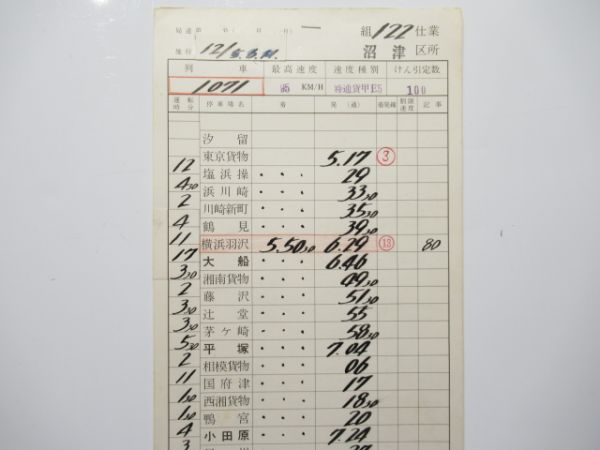 組 122 仕業
施行 12/5.3.21. 沼津 区所
列車 最高速度 速度種別 けん引定数
1071 95 KM/H 特通貨甲E5 100
運転時分 停車場名 着 発(通) 着発線 制限速度 記事
汐留
東京貨物 5.17 ③
12 塩浜操 ・・・ 29
4 30 浜川崎 ・・・ 33 30
2 川崎新町 ・・・ 35 30
4 鶴見 ・・・ 39 30
11 横浜羽沢 5.50 30 6.29 ⑬ 80
17 大船 ・・・ 6.46
3 30 湘南貨物 ・・・ 49 30
2 藤沢 ・・・ 51 30
3 30 辻堂 ・・・ 55
3 30 茅ヶ崎 ・・・ 58 30
5 30 平塚 ・・・ 7.04
2 相模貨物 ・・・ 06
11 国府津 ・・・ 17
1 30 西湘貨物 ・・・ 18 30
1 30 鴨宮 ・・・ 20
4 小田原 ・・・ 7.24
3